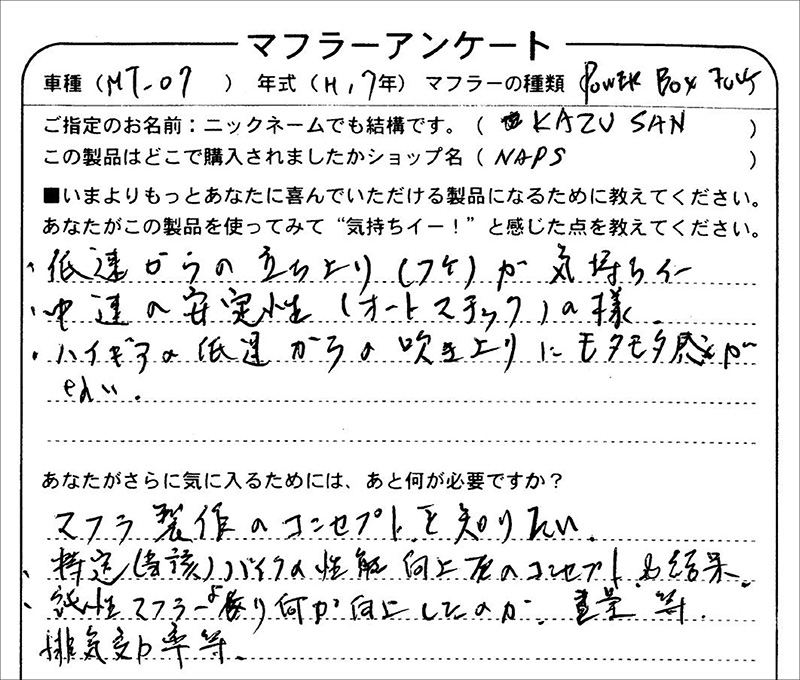 マフラーアンケート
車種（MT-07）年式（H, 7年）マフラーの種類（POWER BOX FULL
ご指定のお名前：ニックネームでも結構です。（KAZU SAN）
この製品はどこで購入されましたかショップ名（NAPS）
■いまよりもっとあなたに喜んでいただける製品になるために教えてください。
あなたがこの製品を使ってみて“気持ちイー！”と感じた点を教えてください。
・低速からの立ち上り（フケ）が気持ちイー
・中速の安定性（オートマチック）の様.
・ハイギアの低速からの吹き上りにモタモタ感が
ない.
あなたがさらに気に入るためには、あと何が必要ですか？
マフラ製作のコンセプトを知りたい.
・特定（当該）バイクの性能向上のコンセプト 結果.
・純性マフラーより何が向上したのか. 重量等.
排気効率等.